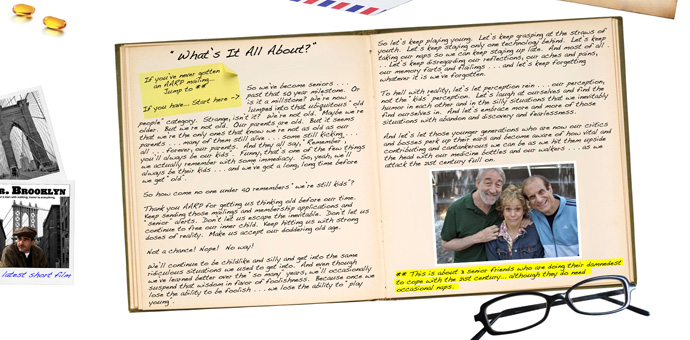 "What's It All About?"
If you've never gotten
an AARP mailing...
Jump to **
If you have... Start here ->
So we've become seniors . . .
past that 50 year milestone. Or
is it a millstone? We're now
lumped into that ubiquitous "old
people" category. Strange, isn't it? We're not old. Maybe we're
older. But we're not old. Our parents are old. But it seems
that we're the only ones that know we're not as old as our
parents . . . many of them still alive . . . some still kicking, . . .
all . . . forever, our parents. And they all say, "Remember,
you'll always be our kids". Funny, that's one of the few things
we actually remember with some immediacy. So, yeah, we'll
always be their kids . . . and we've got a long, long time before
we get "old".
So how come no one under 40 remembers "we're still kids"?
Thank you AARP for getting us thinking old before our time.
Keep sending those mailings and membership applications and
"senior" alerts. Don't let us escape the inevitable. Don't let us
continue to free our inner child. Keep hitting us with strong
doses of reality. Make us accept our doddering old age.
Not a chance! Nope! No way!
We'll continue to be childlike and silly and get into the same
ridiculous situations we used to get into. And even though
we've learned better over the "so many" years, we'll occasionally
suspend that wisdom in favor of foolishness. Because once we
lose the ability to be foolish . . . we lose the ability to "play
young".
So let's keep playing young. Let's keep grasping at the straws of
youth. Let's keep staying only one technology behind. Let's keep
taking our naps so we can keep staying up late. And most of all .
. . Let's keep disregarding our reflections, our aches and pains,
our memory farts and flailings . . . and let's keep forgetting
whatever it is we've forgotten.
To hell with reality, let's let perception rein . . . our perception,
not the "kids" perception. Let's laugh at ourselves and find the
humor in each other and in the silly situations that we inevitably
find ourselves in. And let's embrace more and more of those
situations with abandon and discovery and fearlessness.
And let's let those younger generations who are now our critics
and bosses perk up their ears and become aware of how vital and
contributing and cantankerous we can be as we hit them upside
the head with our medicine bottles and our walkers . . . as we
attack the 21st century full on.
** This is about 3 senior friends who are doing their damnedest
to cope with the 21st century... although they do need
occasional naps.
R. BROOKLYN
latest short film